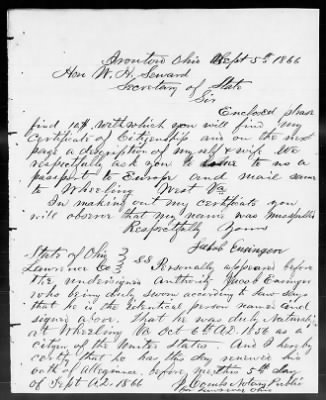 Ironton Ohio Sept 5th 1866
Hon W. H. Seward
Secretary of State
Sir
Enclosed please
find with which you will find my
Certificate of Citizenship and on the next
page a description of my self & wife. We
respectfully ask you to issue to us a
passport to Europe and mail same
to Wheeling West Va
In making out my certificate you
will observe that my name was misspelled
Respectfully Yours
Jacob
State of Ohio
Lawrence Co } SS Personally appeared before
the undersigned Authority Jacob
who being duly sworn according to law says
that he is the identical person named and
signed above. that he was duly Naturalized
at Wheeling Va Oct 6th AD. 1856 as a
citizen of the United States. And I hereby
certify that he has this day renewed his
oath of Allegiance, before me this 5th day
of Sept AD. 1866 Notary Public
Lawrence Ohio